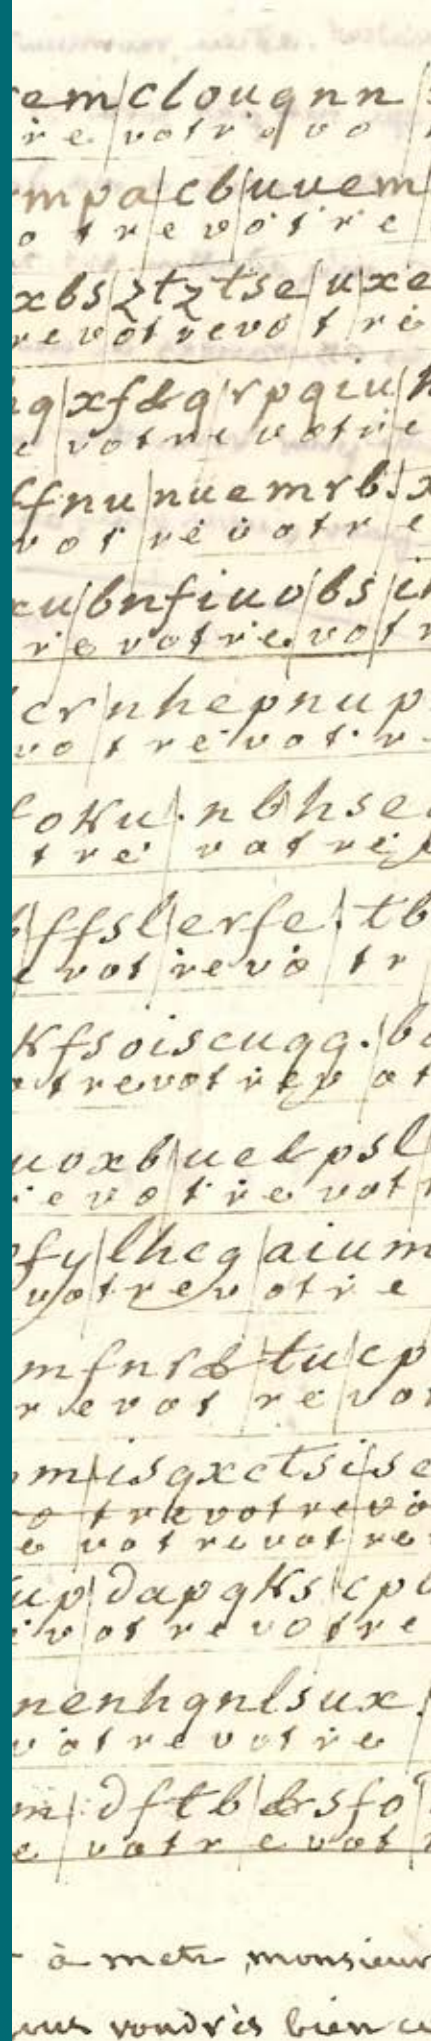 em|clougnn|
re votrevo
mpa|cb|uuem
otrevotre
xbs|ztztse|uxe
revotrevotre
q|xf&q|rpqiu|
e votrevotre
ffnu|nuemrb.x
votrevotre
xu|bnfiuo|bs|i
revotrevotr
crnhepnup
votrevotr
oku.nbhse
tre votre
ffsl|erfe.tb
evotrevotr
kfsoiscuqq.b
otrevotrevot
uoxb|ue&psl
revotrevot
fy|lhcq|aium
votrevotre
mfnr&|tu|cp
revotrevo
m|isqxctsise
otrevotrevo
e votrevotre
up|dapqks|cp
evotrevotre
nenhqnlsux.
votrevotre
m|dftb|&sfo
e votrevot
à metz, monsieur
vous voudrés bien